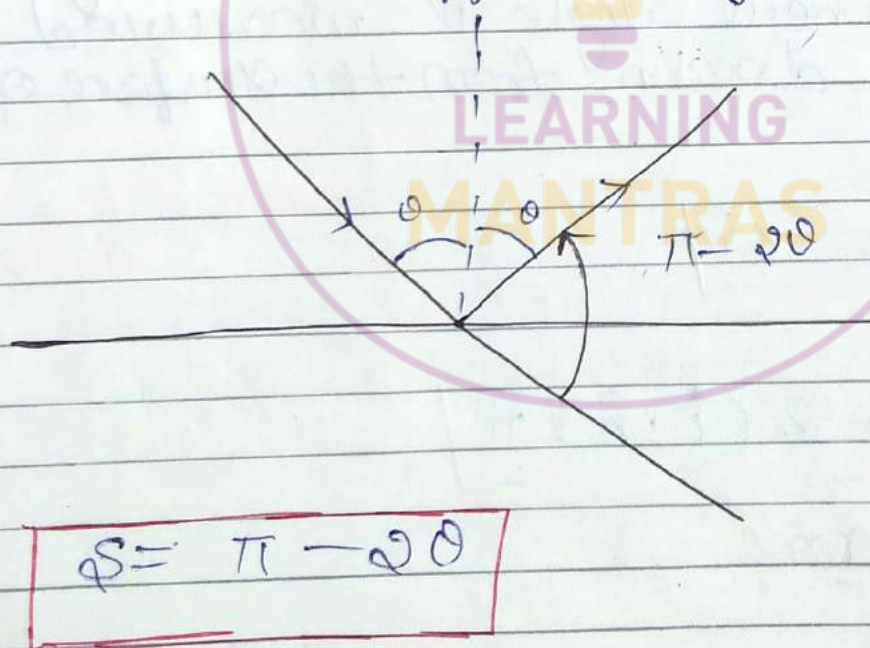 LEARNING
MANTRAS
θ θ
π - 2θ
S = π - 2θ